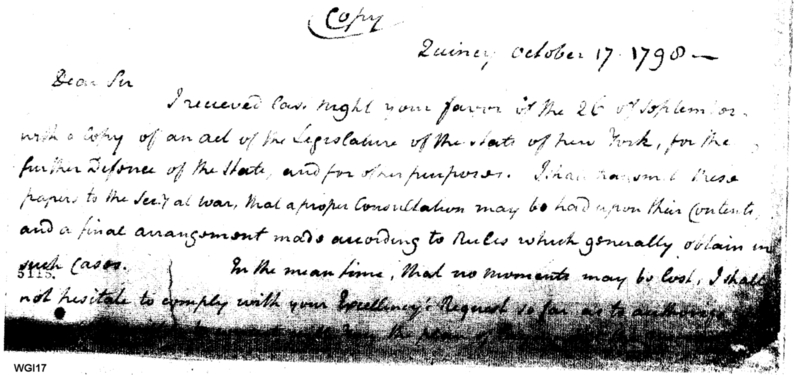 Copy
Quincy October 17. 1798 —
Dear Sir
I received last night your favor of the 26 of September.
with a Copy of an act of the Legislature of the State of New York, for the
further Defence of the State, and for other purposes. I shall transmit these
papers to the Secy at war, that a proper Consultation may be had upon their Contents,
and a final arrangement made according to Rules which generally obtain in
such cases. In the mean time, that no moments may be lost, I shall
5115.
not hesitate to comply with your Excellency's Request so far as to authorize
from the
WGI17